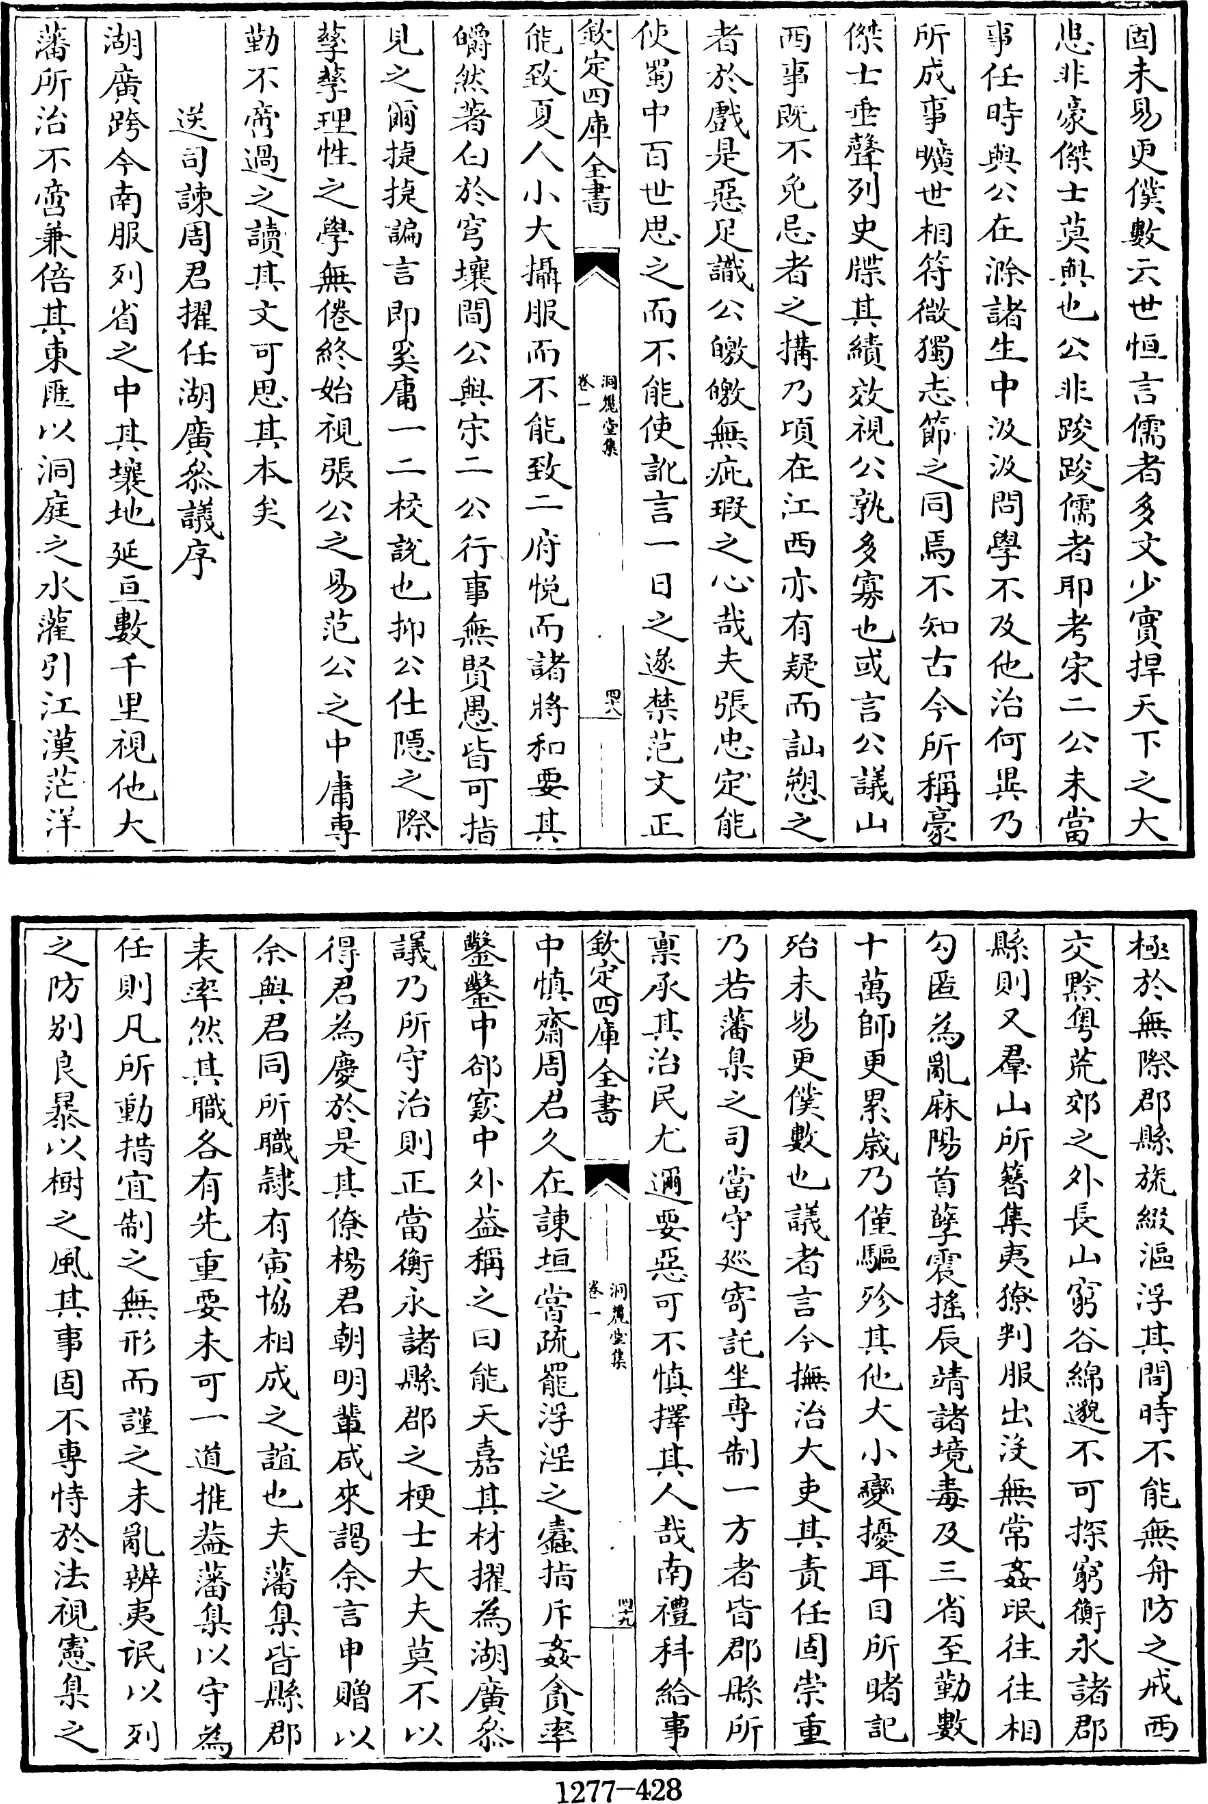 固未易更僕數云世恒言儒者多文少實捍天下之大
患非豪傑士莫與也公非踆踆儒者耶考宋二公未當
事任時與公在滁諸生中汲汲問學不及他治何異乃
所成事曠世相符微獨志節之同焉不知古今所稱豪
傑士垂聲列史牒其績效視公孰多寡也或言公議山
西事既不免忌者之搆乃頃在江西亦有疑而訕愬之
者於戲是惡足識公皦皦無疵瑕之心哉夫張忠定能
使蜀中百世思之而不能使訛言一日之遂禁范文正
欽定四庫全書
洞麓堂集
卷一
四八
能致夏人小大攝服而不能致二府悅而諸將和要其
皭然著白於穹壤間公與宋二公行事無賢愚皆可指
見之爾捷捷諞言即奚庸一二校說也抑公仕隱之際
孳孳理性之學無倦終始視張公之易范公之中庸專
勤不啻過之讀其文可思其本矣
送司諫周君擢任湖廣叅議序
湖廣跨今南服列省之中其壤地延亘數千里視他大
藩所治不啻兼倍其東匯以洞庭之水灌引江漢茫洋
極於無際郡縣旒綴漚浮其間時不能無舟防之戒西
交黔粵荒郊之外長山窮谷綿邈不可探窮衡永諸郡
縣則又羣山所簪集夷獠判服出没無常姦氓往往相
勾匿為亂麻陽首孽震搖辰靖諸境毒及三省至勤數
十萬師更累歲乃僅驅殄其他大小變擾耳目所睹記
殆未易更僕數也議者言今撫治大吏其責任固崇重
乃若藩臬之司當守廵寄託坐専制一方者皆郡縣所
禀承其治民尤邇要惡可不慎擇其人哉南禮科給事
欽定四庫全書
洞麓堂集
卷一
四十九
中慎齋周君久在諫垣嘗疏罷浮淫之蠧指斥姦貪率
鑿鑿中郤窽中外益稱之曰能天嘉其材擢為湖廣叅
議乃所守治則正當衡永諸縣郡之梗士大夫莫不以
得君為慶於是其僚楊君朝明輩咸來謁余言申贈以
余與君同所職隷有寅協相成之誼也夫藩臬皆縣郡
表率然其職各有先重要未可一道推葢藩臬以守為
任則凡所動措宜制之無形而謹之未亂辨夷氓以列
之防别良暴以樹之風其事固不專恃於法視憲臬之
1277-428